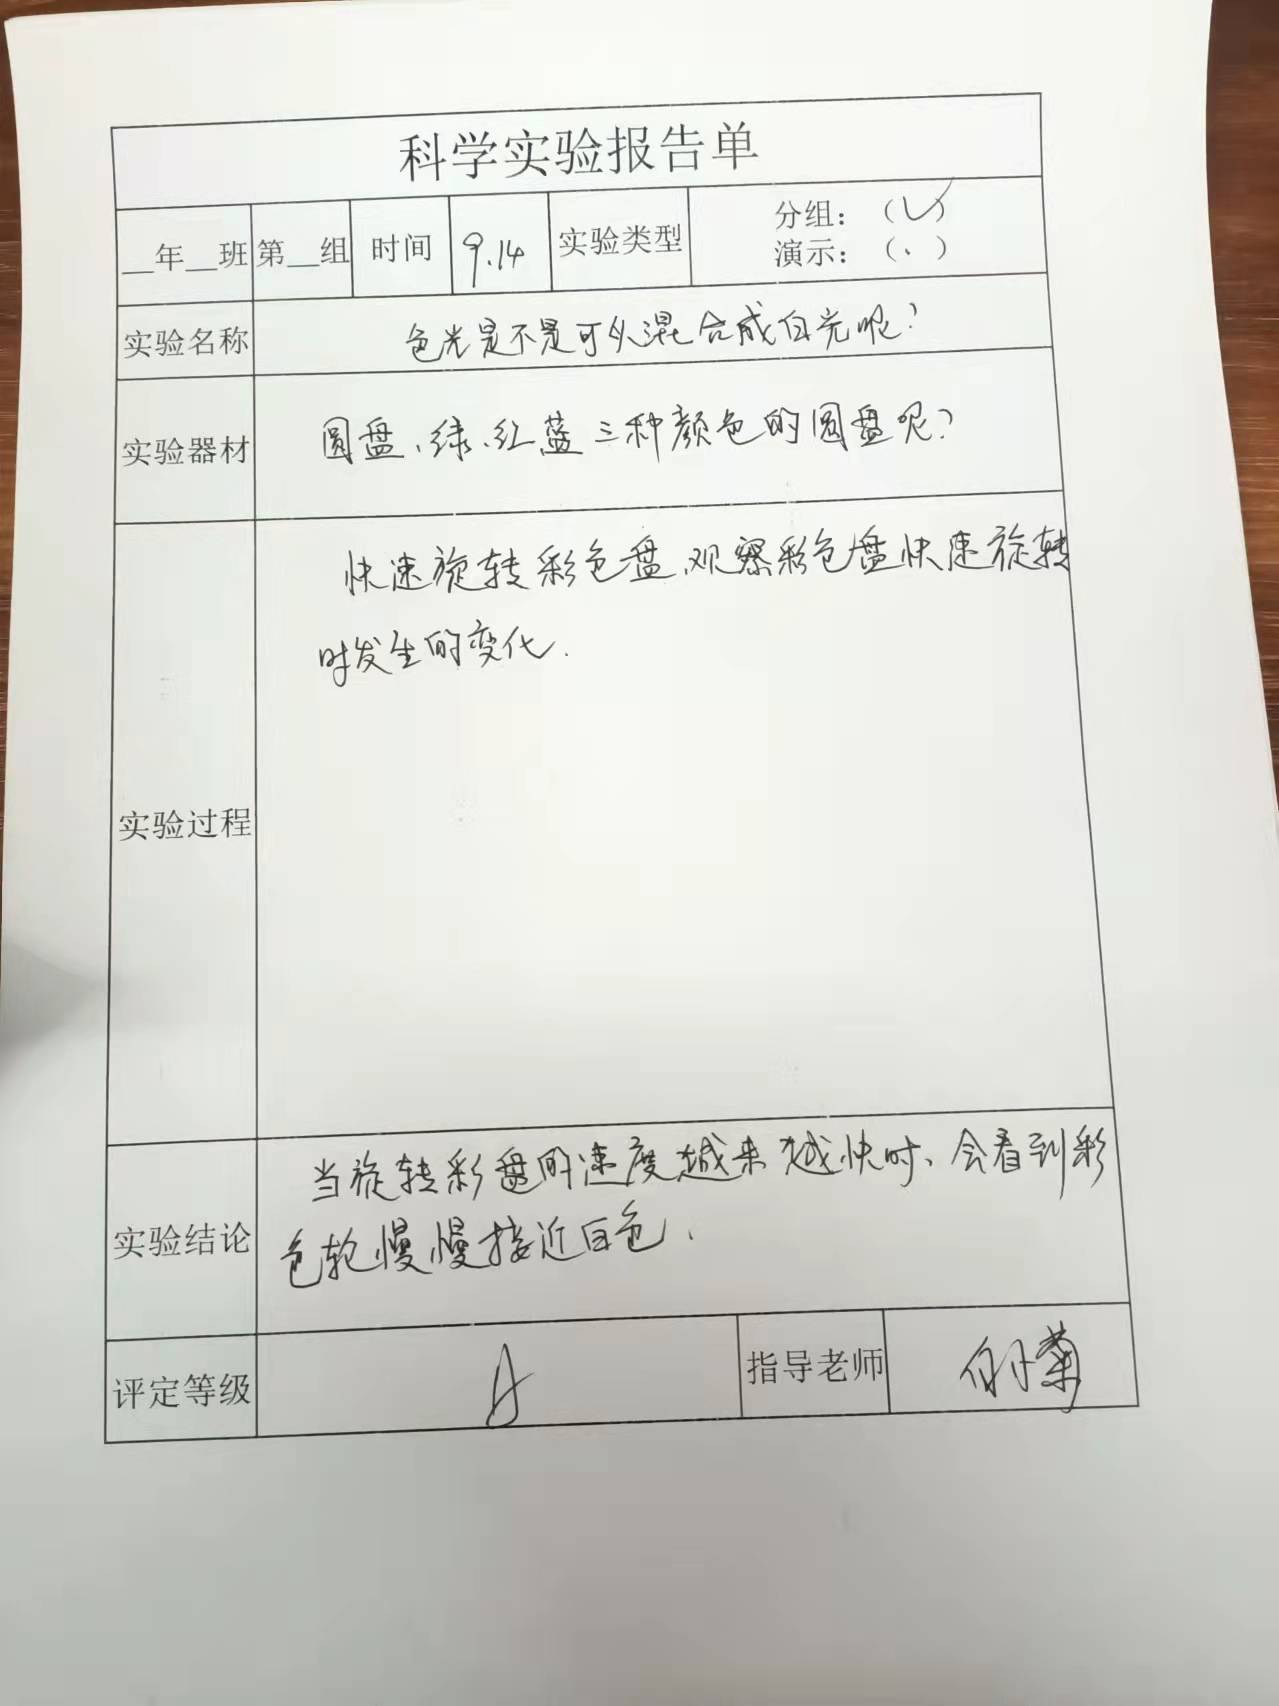 科学实验报告单
__年__班 第__组 时间 9.14 实验类型 分组：（✓）
演示：（.）
实验名称 色光是不是可以混合成白光呢？
实验器材 圆盘、绿、红蓝三种颜色的圆盘呢？
实验过程 快速旋转彩色盘、观察彩色盘快速旋转
时发生的变化.
实验结论 当旋转彩盘的速度越来越快时、会看到彩
色轮慢慢接近白色.
评定等级 A 指导老师